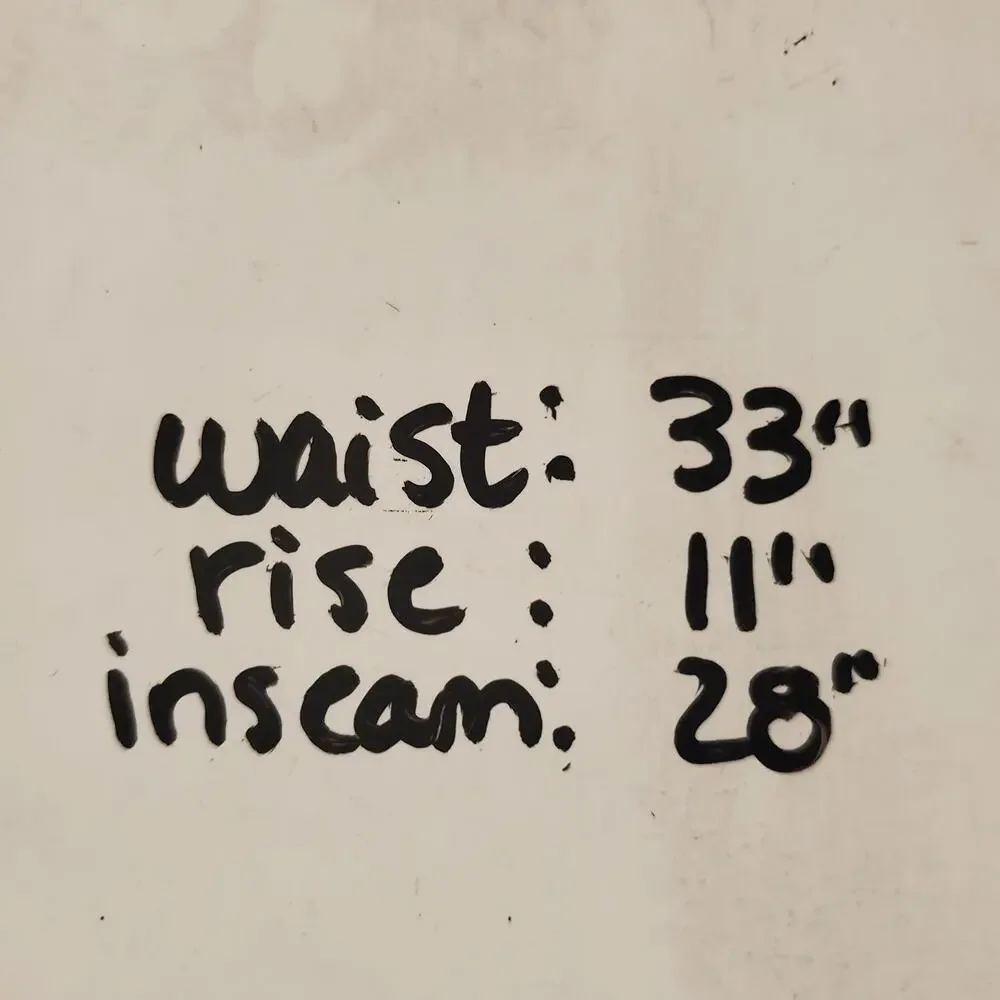 waist: 33"
rise : 11"
inseam: 28"